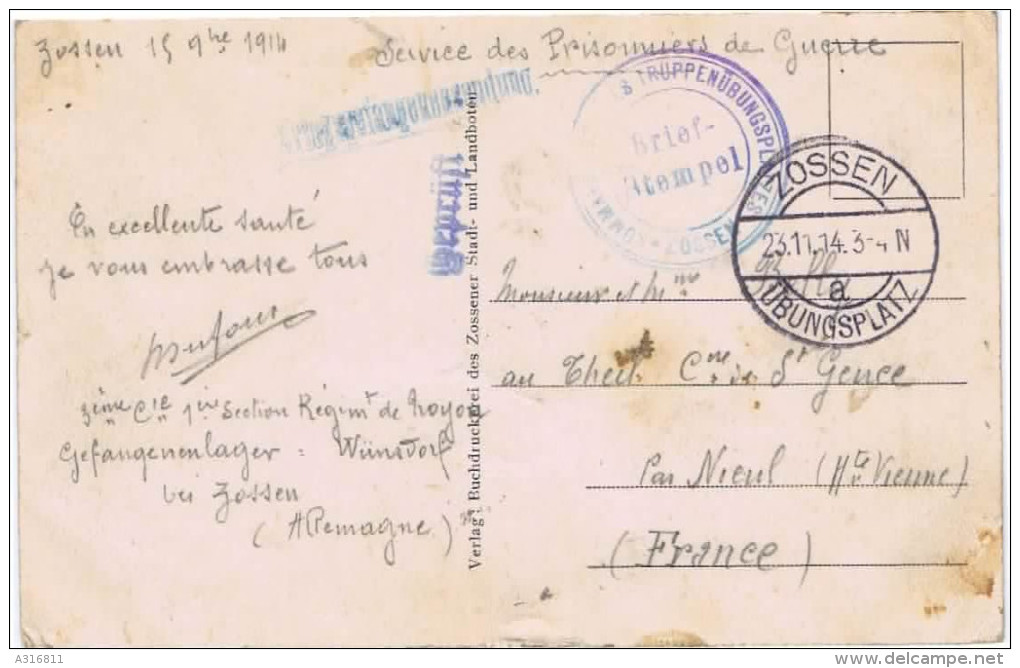 Zossen 15 9bre 1914
Service des Prisonniers de Guerre
TRUPPENÜBUNGSPLATZES
ZOSSEN
Brief-
Stempel
ZOSSEN
23.11.14. 3-4 N
a
ÜBUNGSPLATZ
En excellente santé
je vous embrasse tous
3ème Cie 1ère Section Régimt de Noyon
Gefangenenlager : Wünsdorf
bei Zossen
(Allemagne)
Verlag: Buchdruckerei des Zossener Stadt- und Landboten
Monsieur et Mme
au Theil Cne de St Gence
Par Nieul (Hte Vienne)
(France)
A316811
www.delcampe.net